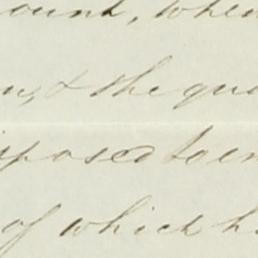 ount, when
, & the que
sposed to en
of which h